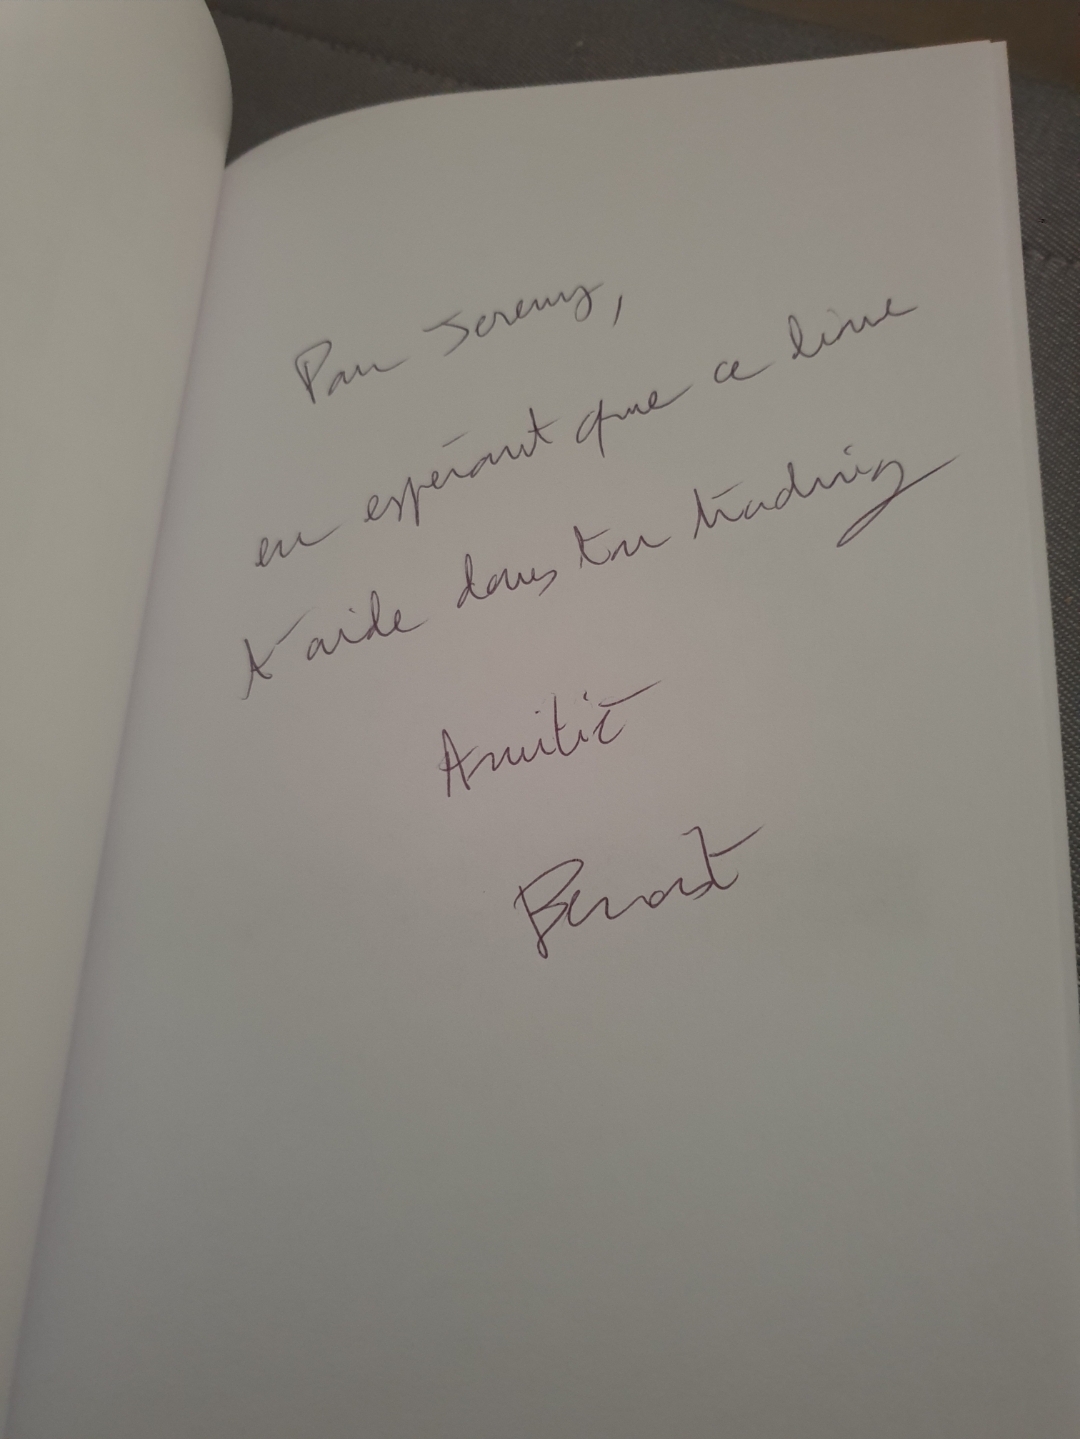 Pour Jeremy,
en espérant que ce livre
t'aide dans ton trading
Amitié
Benoist